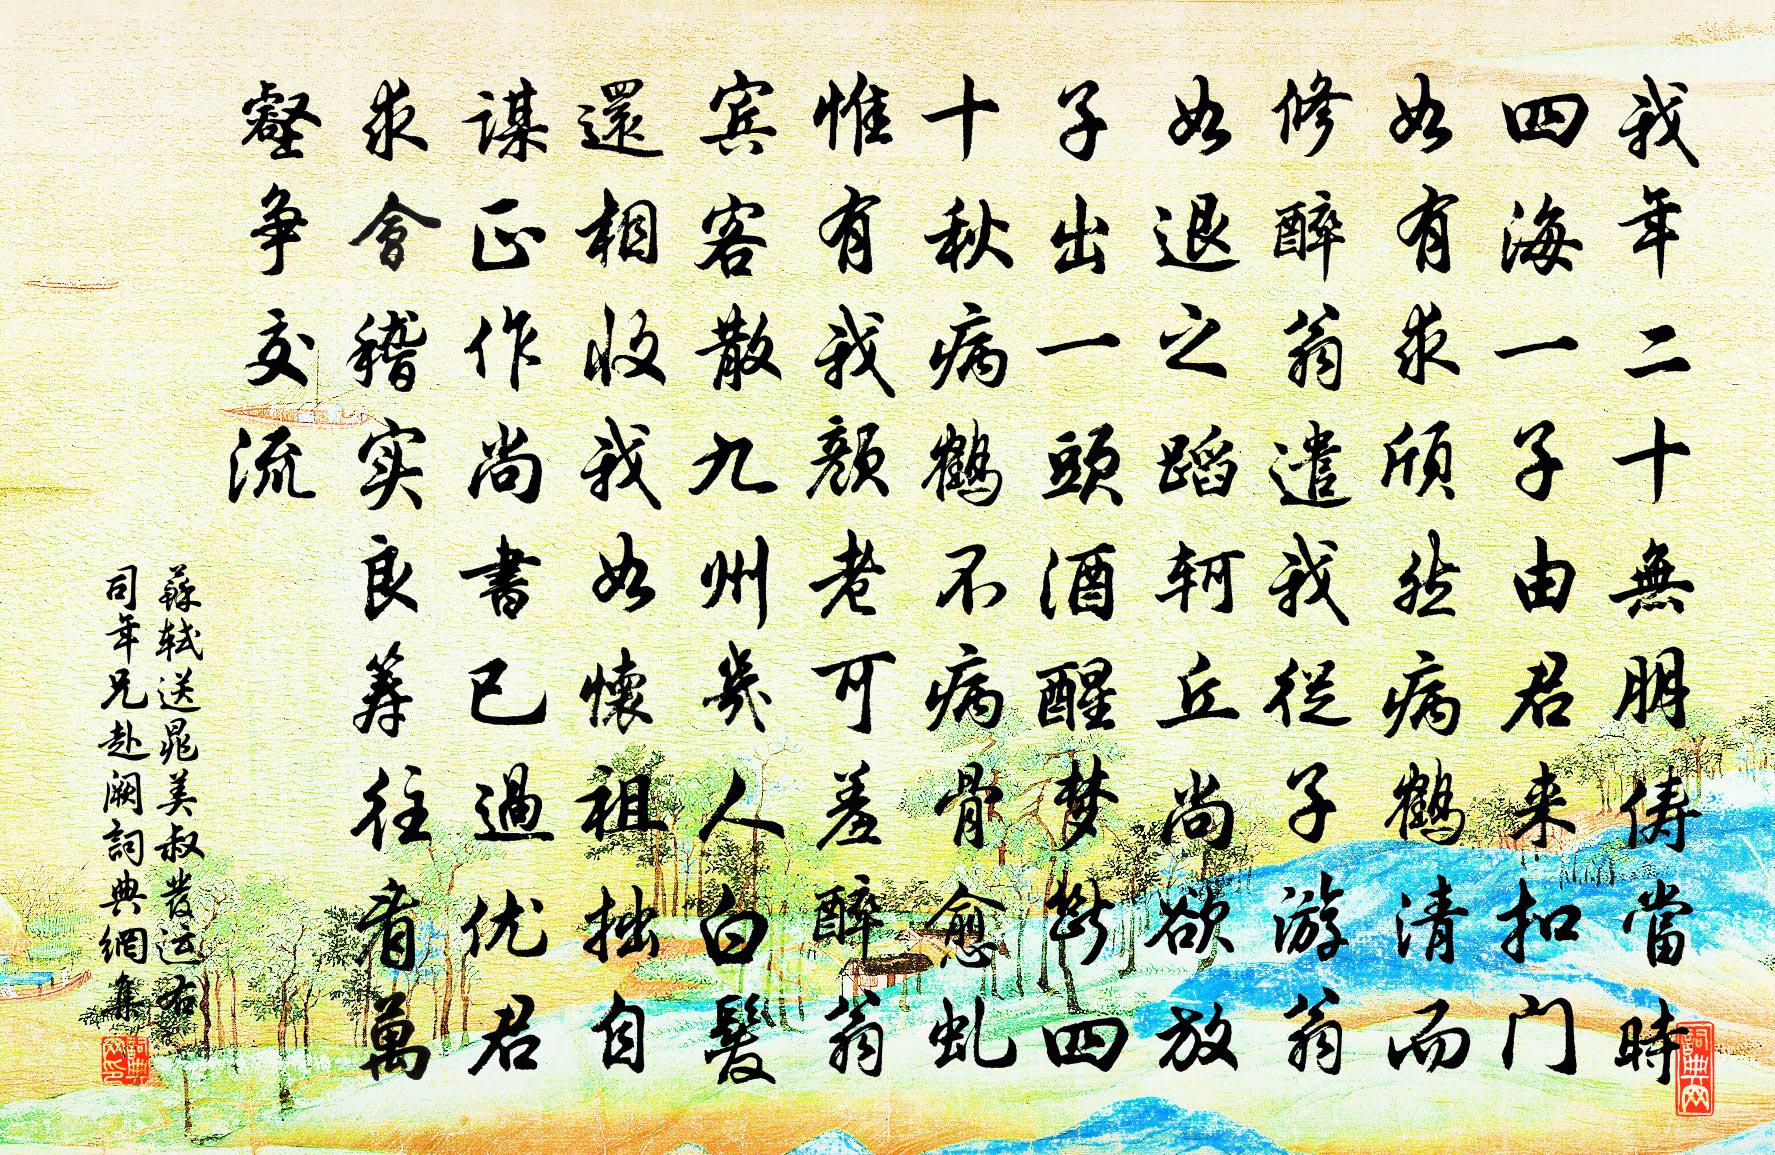 我年二十無朋儔當時
四海一子由君来扣门
如有求颀然病鶴清而
修醉翁遣我從子游翁
如退之蹈轲丘尚欲放
子出一頭酒醒梦斷四
十秋病鶴不病骨愈虬
惟有我顔老可羞醉翁
宾客散九州幾人白髮
還相收我如懷祖拙自
謀正作尚書已過优君
求會稽实良筹往看萬
壑争交流
蘇轼送晁美叔發运右
司年兄赴阙詞典網集
詞典网
詞典网印